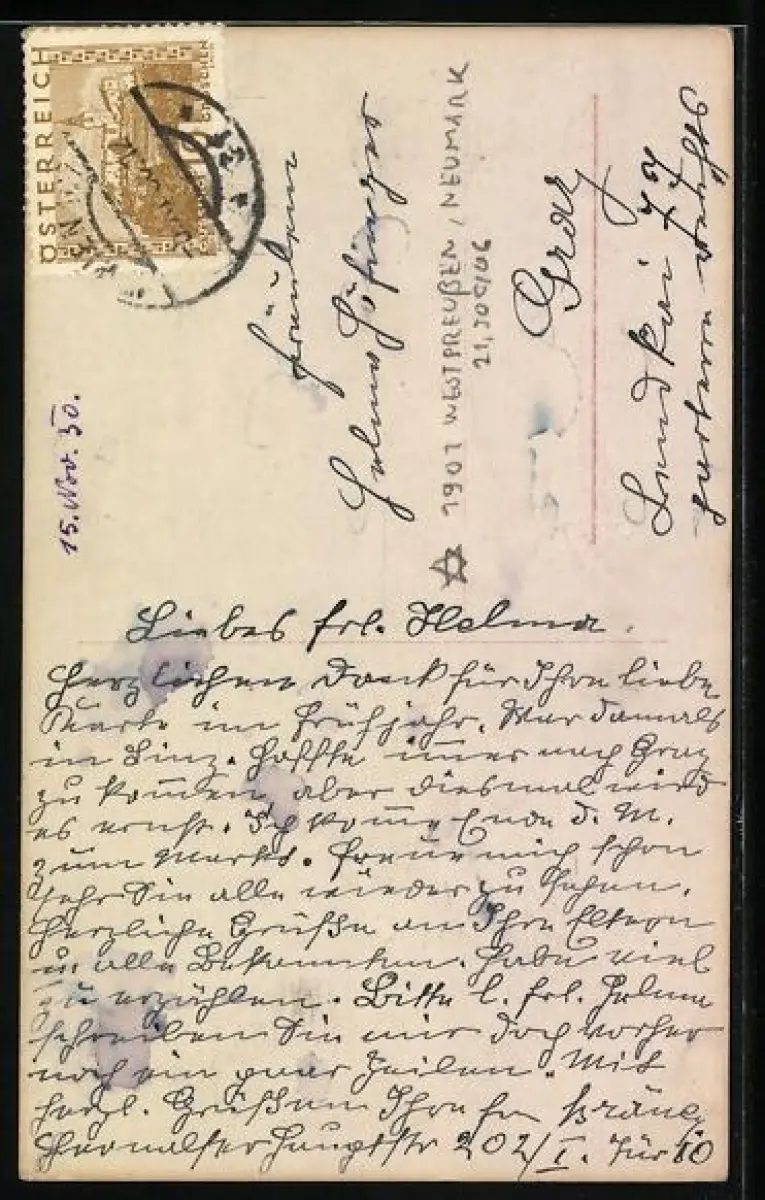 ÖSTERREICH
GROSCHEN
15. Nov. 30.
Fräulein
Helma
1901 WESTPREUßEN, NEUMARK
Graz
Lendkai 77
parterre rechts
Liebes Frl. Helma.
Herzlichen Dank für Ihre liebe
Karte im Frühjahr. War damals
in Linz. Hoffte immer nach Graz
zu kommen, aber diesmal wird
es ernst. Ich komme Ende d. M.
zum Markt. Freue mich schon
sehr Sie alle wieder zu sehen.
Herzliche Grüße an Ihre Eltern
u. alle Bekannten. Habe viel
zu erzählen. Bitte l. Frl. Helma
schreiben Sie mir doch vorher
noch ein paar Zeilen. Mit
herzl. Grüßen Ihre
Hernalser Hauptstr 202/I. Tür 10